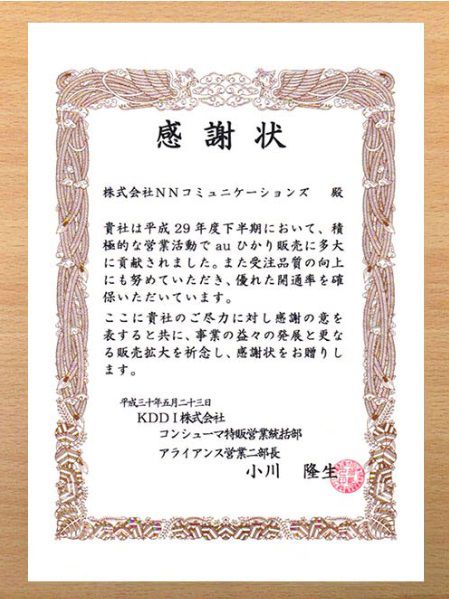 感謝状
株式会社NNコミュニケーションズ 殿
貴社は平成29年度下半期において、積
極的な営業活動でauひかり販売に多大
に貢献されました。また受注品質の向上
にも努めていただき、優れた開通率を確
保いただいています。
ここに貴社のご尽力に対し感謝の意を
表すると共に、事業の益々の発展と更な
る販売拡大を祈念し、感謝状をお贈りしま
す。
平成三十年五月二十三日
KDDI株式会社
コンシューマ特販営業統括部
アライアンス営業二部長
小川 隆生